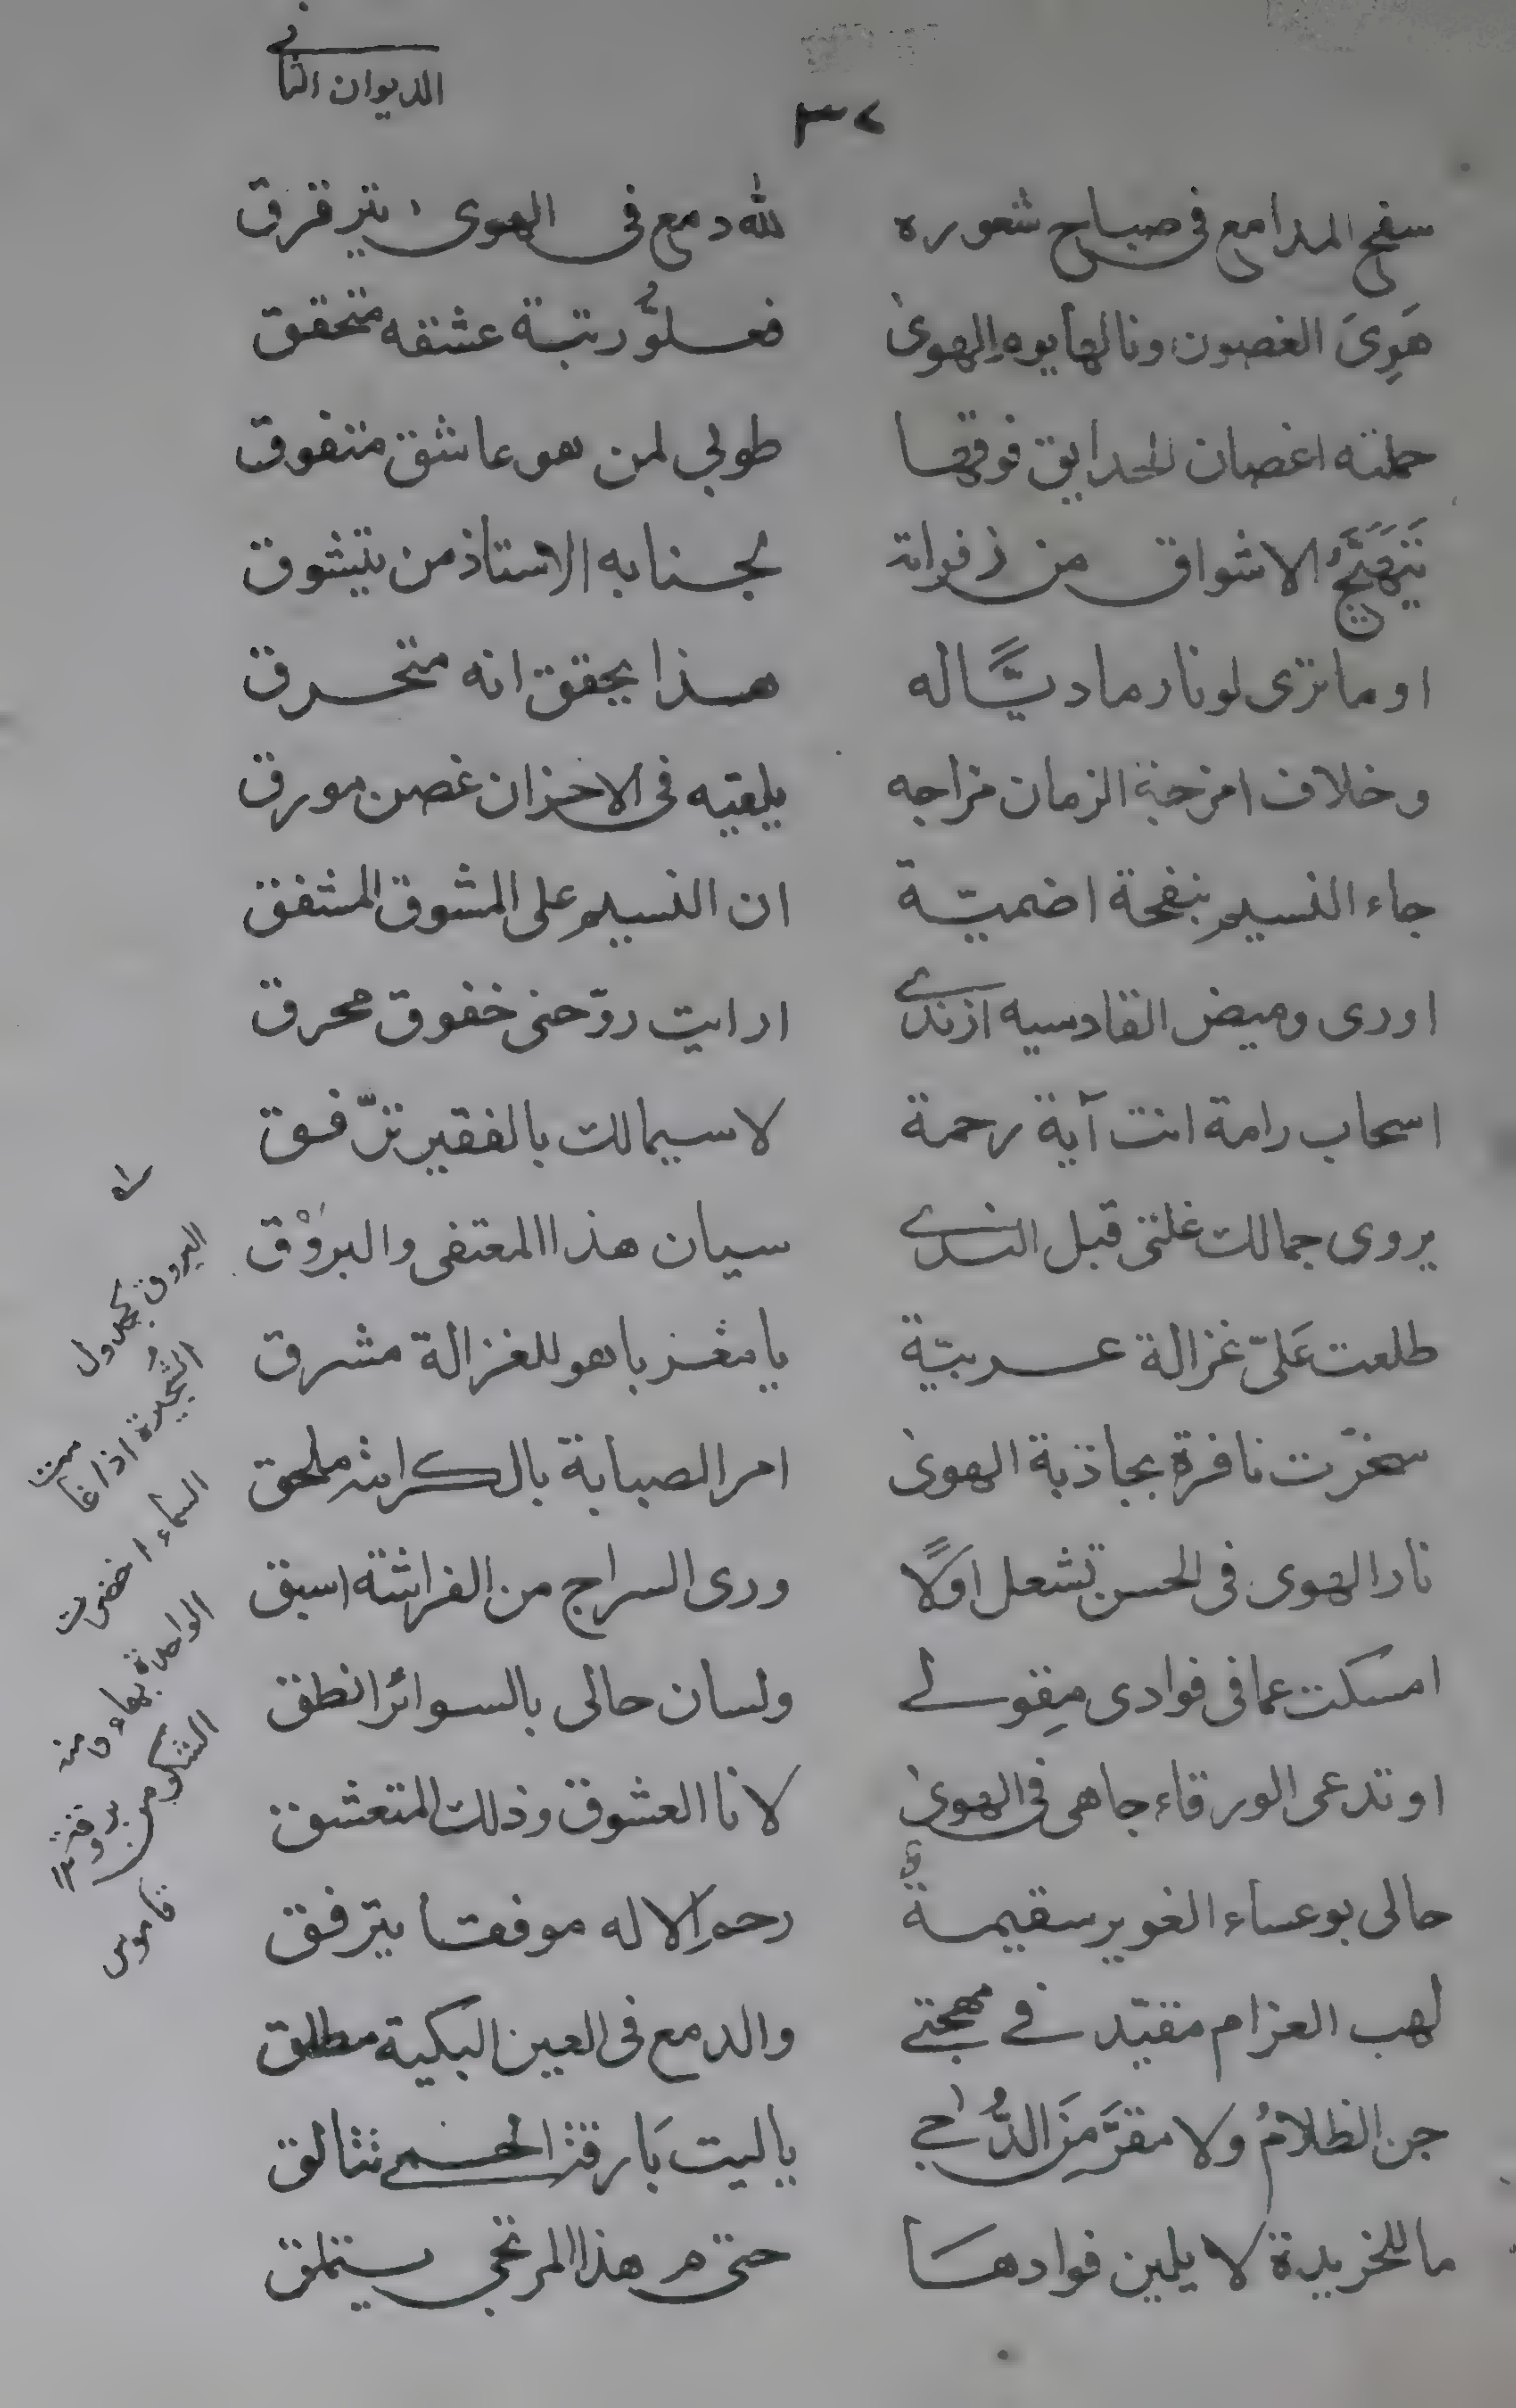 الديوان الثانى
٣٢
سفح المدامع فى صباح شعوره لله دمع فى الهوى يترقرق
هَوِىَ الغصون ونالها يوم الهوىٰ فعلوُّ رتبة عشقه متحقق
حملته اغصان الحدايق فوقها طوبى لمن هو عاشق متفوق
تَتَهَيَّجُ الاشواق من زفراته لجنابه الاستاذ من يتشوق
او ما ترى لونا رماديًّا له هذا يحقق انه متحرق
وخلاف امزجة الزمان مزاجه يلقيه فى الاحزان غصن مورق
جاء النسيم بنفحة اضميّة ان النسيم على المشوق المشفق
اورى وميض القادسيه ازندى ارايت روّحنى خفوق محرق
اسحاب رامة انت آية رحمة لا سيما لك بالفقير ترّفق
يروى جمالك غلتى قبل الندى سيان هذا المعتفى والبَروْق
طلعت عَلىّ غزالة عربيّة يا منذ باهو للغزالة مشرق
سخرّت نافرة بجاذبة الهوىٰ امر الصبابة بالكرامة ملحق
نار الهوى فى الحسن تشعل اوّلًا ورى السراج من الفراشة اسبق
امسكت عما فى فوادى مِقولى ولسان حالى بالسوائر انطق
او تدعى الورقاء جاهى فى الهوىٰ لانا العشوق وذلك المتعشق
حالى بوعساء الغوير سقيمةٌ رحم الاله موفقا يترفق
لهب الغرام مقيّد فى مهجتى والدمع فى العين البكية مطلق
جن الظلامُ ولا مقرَّ مَنَ الدُّجى يا ليت بَارقة الحمى تتالق
ما للخريدة لا يلين فوادهَا حتى م هذا المرتجى يستملق
البروق كجدول
الشُجيرة اذا غامت
السماء اخضرت
الواحدة بهاء ومنه
اشكر من بروقةٍ
قاموس